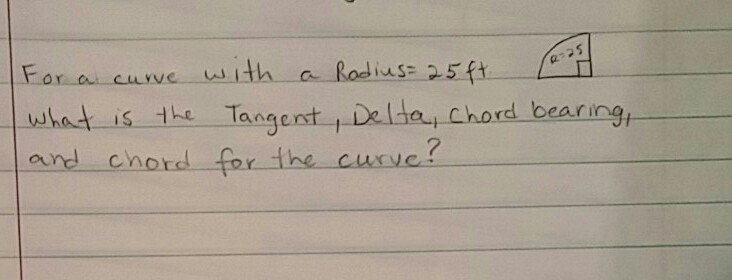 For a curve with a Radius= 25ft R=25
what is the Tangent, Delta, chord bearing,
and chord for the curve?